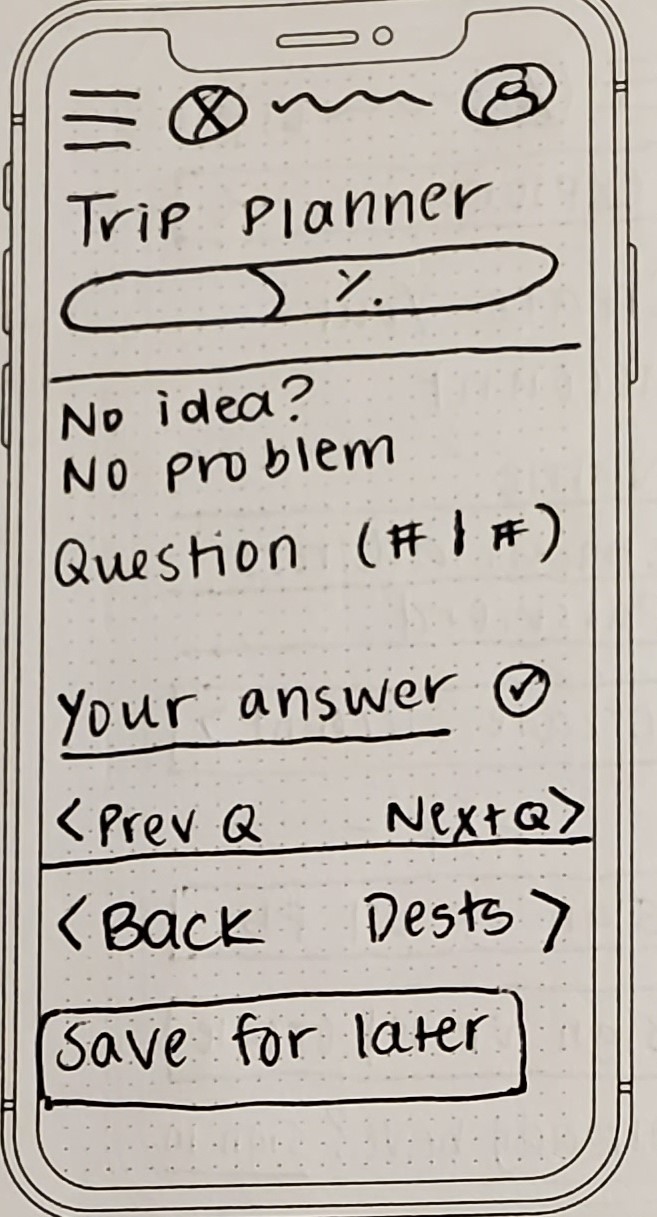 Trip Planner
%
No idea?
No problem
Question (# | #)
Your answer
< Prev Q Next Q >
< Back Dests >
Save for later